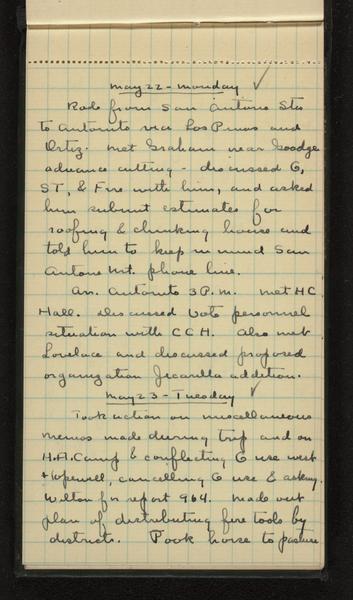 May 22 - Monday ✓
Rode from San Antone Sta
to Antonito via Los Pinos and
Ortiz. Met Graham near Goodge
advance cutting - discussed G,
ST, & Fire with him, and asked
him submit estimates for
roofing & chinking house and
told him to keep in mind San
Antone Mt. phone line.
An. Antonito 3 P.M. Met HC
Hall. Discussed personnel
situation with CCH. Also met
Lovelace and discussed proposed
organization Jicarilla addition.
May 23 - Tuesday ✓
Took action on miscellaneous
memos made during trip and on
H.A. Camp & conflicting G use west
Hopewell, cancelling G use & asking
Wilton for report 964. Made out
plan of distributing fire tools by
districts. Took horse to pasture